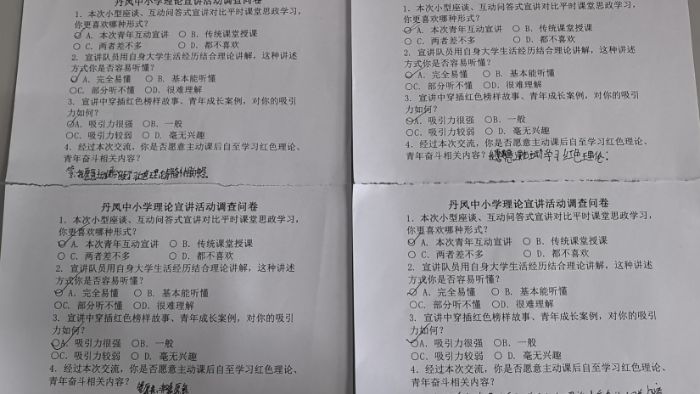 丹凤中小学理论宣讲活动调查问卷
1. 本次小型座谈、互动问答式宣讲对比平时课堂思政学习，
你更喜欢哪种形式？
○ A. 本次青年互动宣讲 ○ B. 传统课堂授课
○ C. 两者差不多 ○ D. 都不喜欢
2. 宣讲队员用自身大学生活经历结合理论讲解，这种讲述
方式你是否容易听懂？
○ A. 完全易懂 ○ B. 基本能听懂
○C. 部分听不懂 ○D. 很难理解
3. 宣讲中穿插红色榜样故事、青年成长案例，对你的吸引
力如何？
○A. 吸引力很强 ○B. 一般
○C. 吸引力较弱 ○ D. 毫无兴趣
4. 经过本次交流，你是否愿意主动课后自至学习红色理论、
青年奋斗相关内容？
1. 本次小型座谈、互动问答式宣讲对比平时课堂思政学习，
你更喜欢哪种形式？
○ A. 本次青年互动宣讲 ○ B. 传统课堂授课
○ C. 两者差不多 ○ D. 都不喜欢
2. 宣讲队员用自身大学生活经历结合理论讲解，这种讲述
方式你是否容易听懂？
○ A. 完全易懂 ○ B. 基本能听懂
○C. 部分听不懂 ○D. 很难理解
3. 宣讲中穿插红色榜样故事、青年成长案例，对你的吸引
力如何？
○A. 吸引力很强 ○B. 一般
○C. 吸引力较弱 ○ D. 毫无兴趣
4. 经过本次交流，你是否愿意主动课后自至学习红色理论、
青年奋斗相关内容？ 学习红色理论
丹凤中小学理论宣讲活动调查问卷
1. 本次小型座谈、互动问答式宣讲对比平时课堂思政学习，
你更喜欢哪种形式？
○ A. 本次青年互动宣讲 ○ B. 传统课堂授课
○ C. 两者差不多 ○ D. 都不喜欢
2. 宣讲队员用自身大学生活经历结合理论讲解，这种讲述
方式你是否容易听懂？
○ A. 完全易懂 ○ B. 基本能听懂
○C. 部分听不懂 ○D. 很难理解
3. 宣讲中穿插红色榜样故事、青年成长案例，对你的吸引
力如何？
○A. 吸引力很强 ○B. 一般
○C. 吸引力较弱 ○ D. 毫无兴趣
4. 经过本次交流，你是否愿意主动课后自至学习红色理论、
青年奋斗相关内容？
丹凤中小学理论宣讲活动调查问卷
1. 本次小型座谈、互动问答式宣讲对比平时课堂思政学习，
你更喜欢哪种形式？
○ A. 本次青年互动宣讲 ○ B. 传统课堂授课
○ C. 两者差不多 ○ D. 都不喜欢
2. 宣讲队员用自身大学生活经历结合理论讲解，这种讲述
方式你是否容易听懂？
○ A. 完全易懂 ○ B. 基本能听懂
○C. 部分听不懂 ○D. 很难理解
3. 宣讲中穿插红色榜样故事、青年成长案例，对你的吸引
力如何？
○A. 吸引力很强 ○B. 一般
○C. 吸引力较弱 ○ D. 毫无兴趣
4. 经过本次交流，你是否愿意主动课后自至学习红色理论、
青年奋斗相关内容？